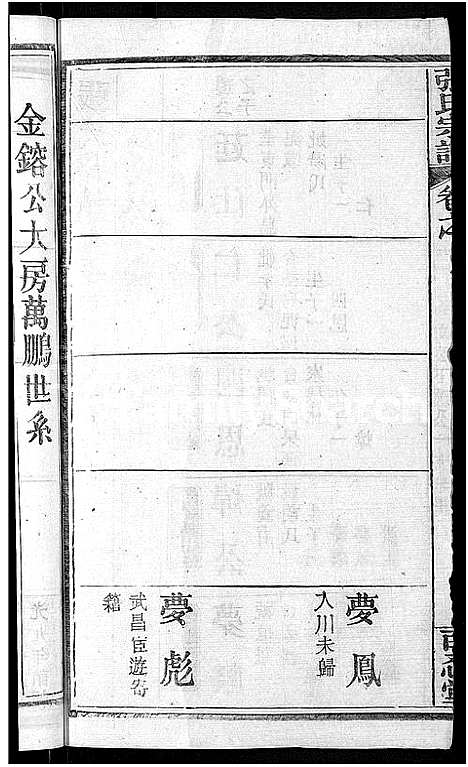 張氏宗譜
夢鳳
入川未歸
夢彪
武昌宦遊寄
籍
金鎔公大房萬鵬世系